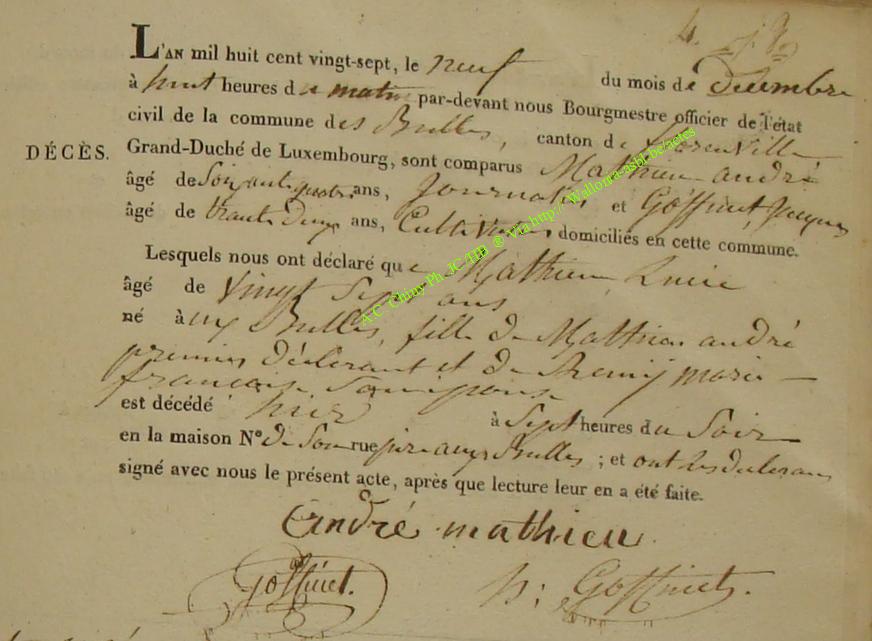 L'AN mil huit cent vingt-sept, le neuf du mois de Décembre
à huit heures du matin par-devant nous Bourgmestre officier de l'état
civil de la commune des Bulles, canton de florenville
DÉCÈS.
Grand-Duché de Luxembourg, sont comparus Mathieu andré
âgé de Soixante quatre ans, Journalier, et Goffinet Jacques
âgé de trante Deux ans, Cultivateur domiciliés en cette commune.
Lesquels nous ont déclaré que Mathieu Lucie
âgé de Vingt Sept ans
né à aux Bulles, fille de Mathieu andré
premier déclarant et de Remij marie
françoise Son épouse
est décédé hier à Sept heures du Soir
en la maison N° de Son rue père aux Bulles ; et ont les déclarans
signé avec nous le présent acte, après que lecture leur en a été faite.
André mathieu
Goffinet. Goffinet.
A.C. Chiny Ph. JC/HB ® via http://Wallonia-asbl.be/actes